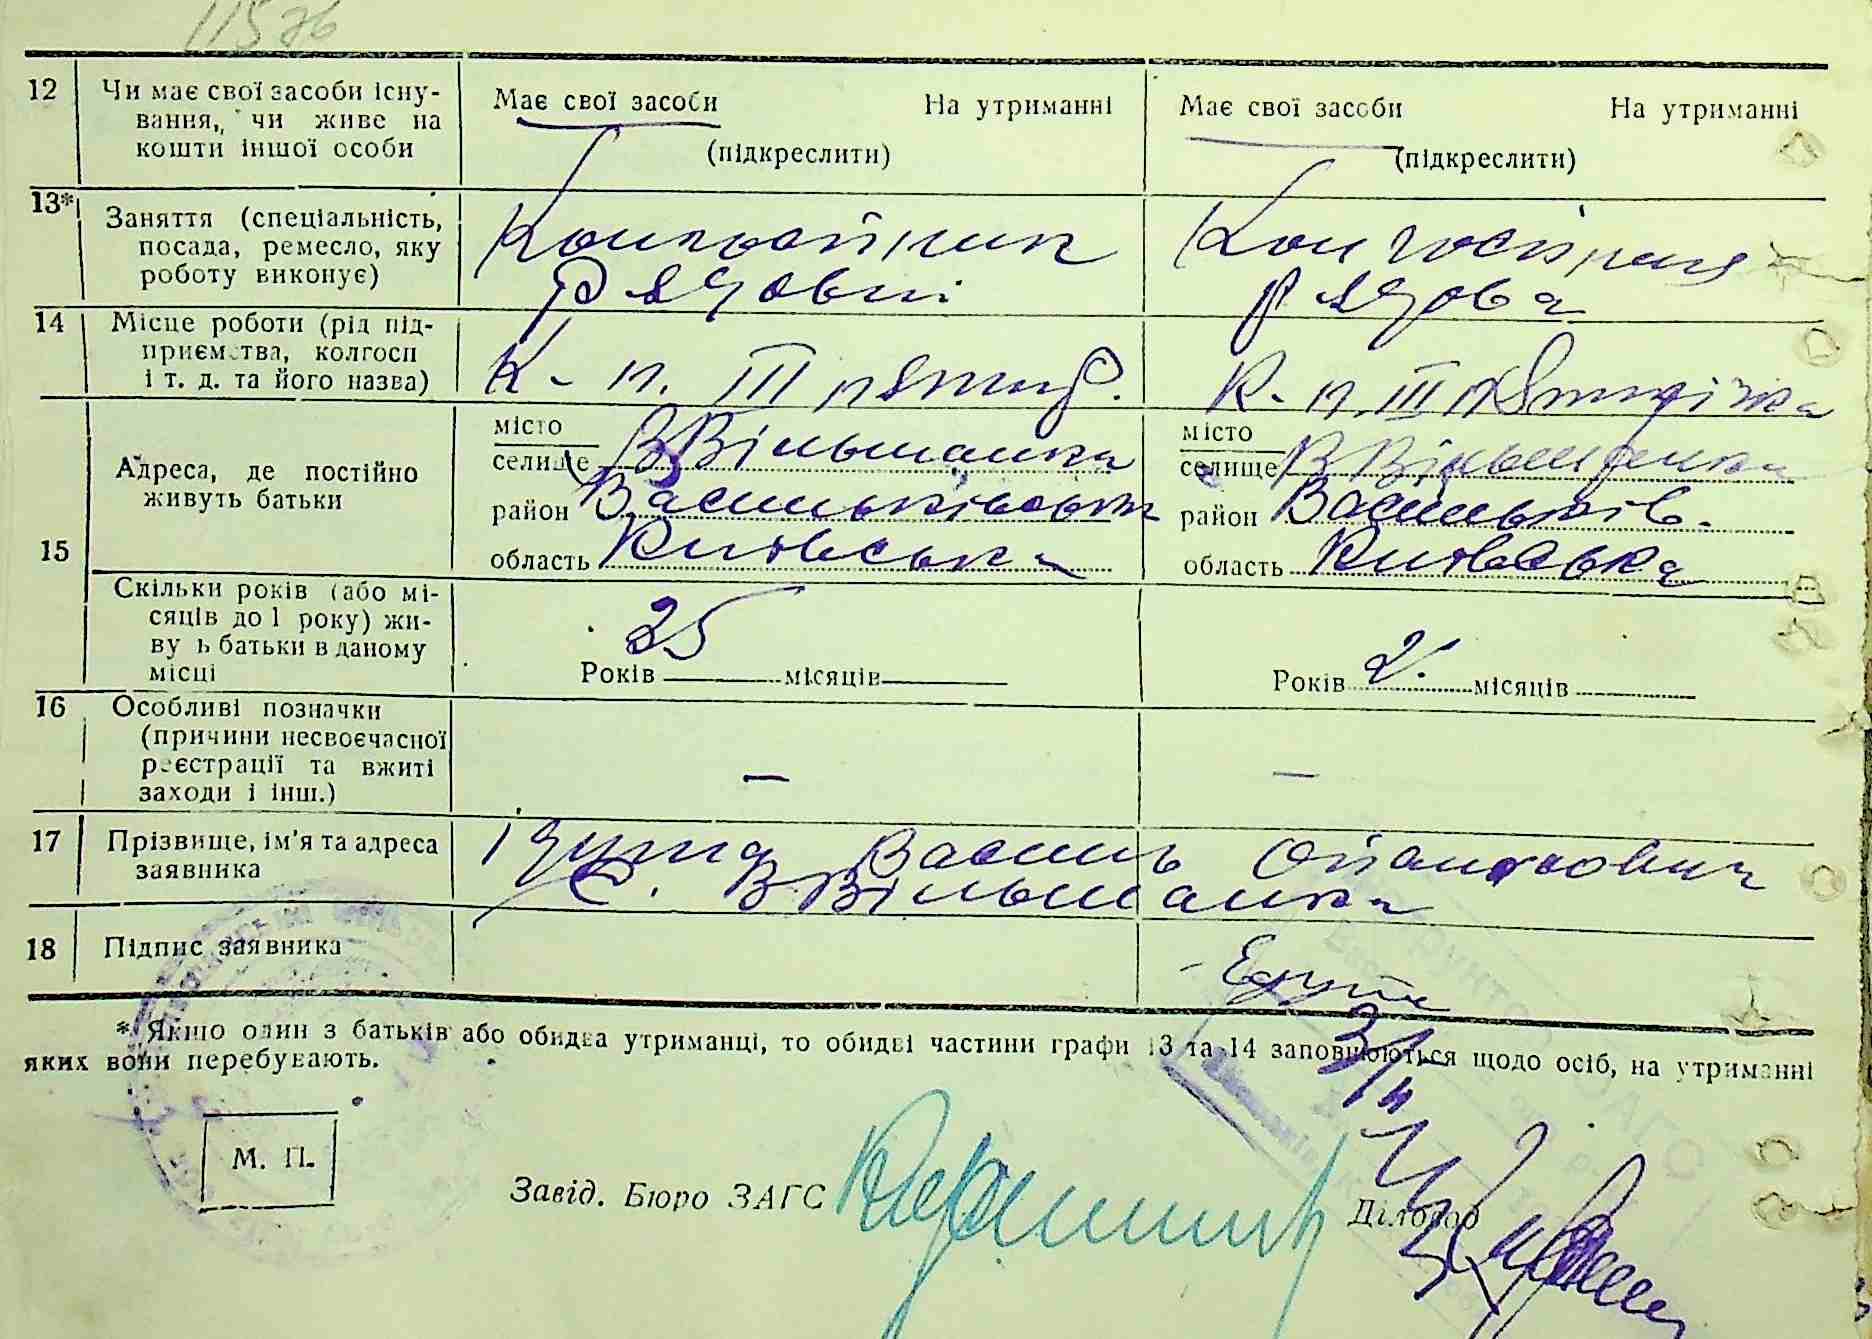 11576
12 Чи має свої засоби існу- Має свої засоби На утриманні Має свої засоби На утриманні
вання, чи живе на
кошти іншої особи (підкреслити) (підкреслити)
13* Заняття (спеціальність,
посада, ремесло, яку
роботу виконує) рядовий рядова
14 Місце роботи (рід під-
приємства, колгосп
і т. д. та його назва) К-п. III пятид. К-п. III пятидічка
15 Адреса, де постійно
живуть батьки
місто місто
селище В Вільшанка селище В Вільшанка
район Васильківськ район Васильків.
область Київська область Київська
Скільки років (або мі-
сяців до 1 року) жи-
ву ь батьки в даному
місці Років 25 місяців Років 2. місяців
16 Особливі позначки
(причини несвоєчасної
реєстрації та вжиті
заходи і інш.) — —
17 Прізвище, ім'я та адреса Василь
заявника с. В Вільшанка
18 Підпис заявника
* Якщо один з батьків або обидва утриманці, то обидві частини графи 13 та 14 заповнюються щодо осіб, на утриманні
яких вони перебувають.
М. П.
Завід. Бюро ЗАГС Діловод